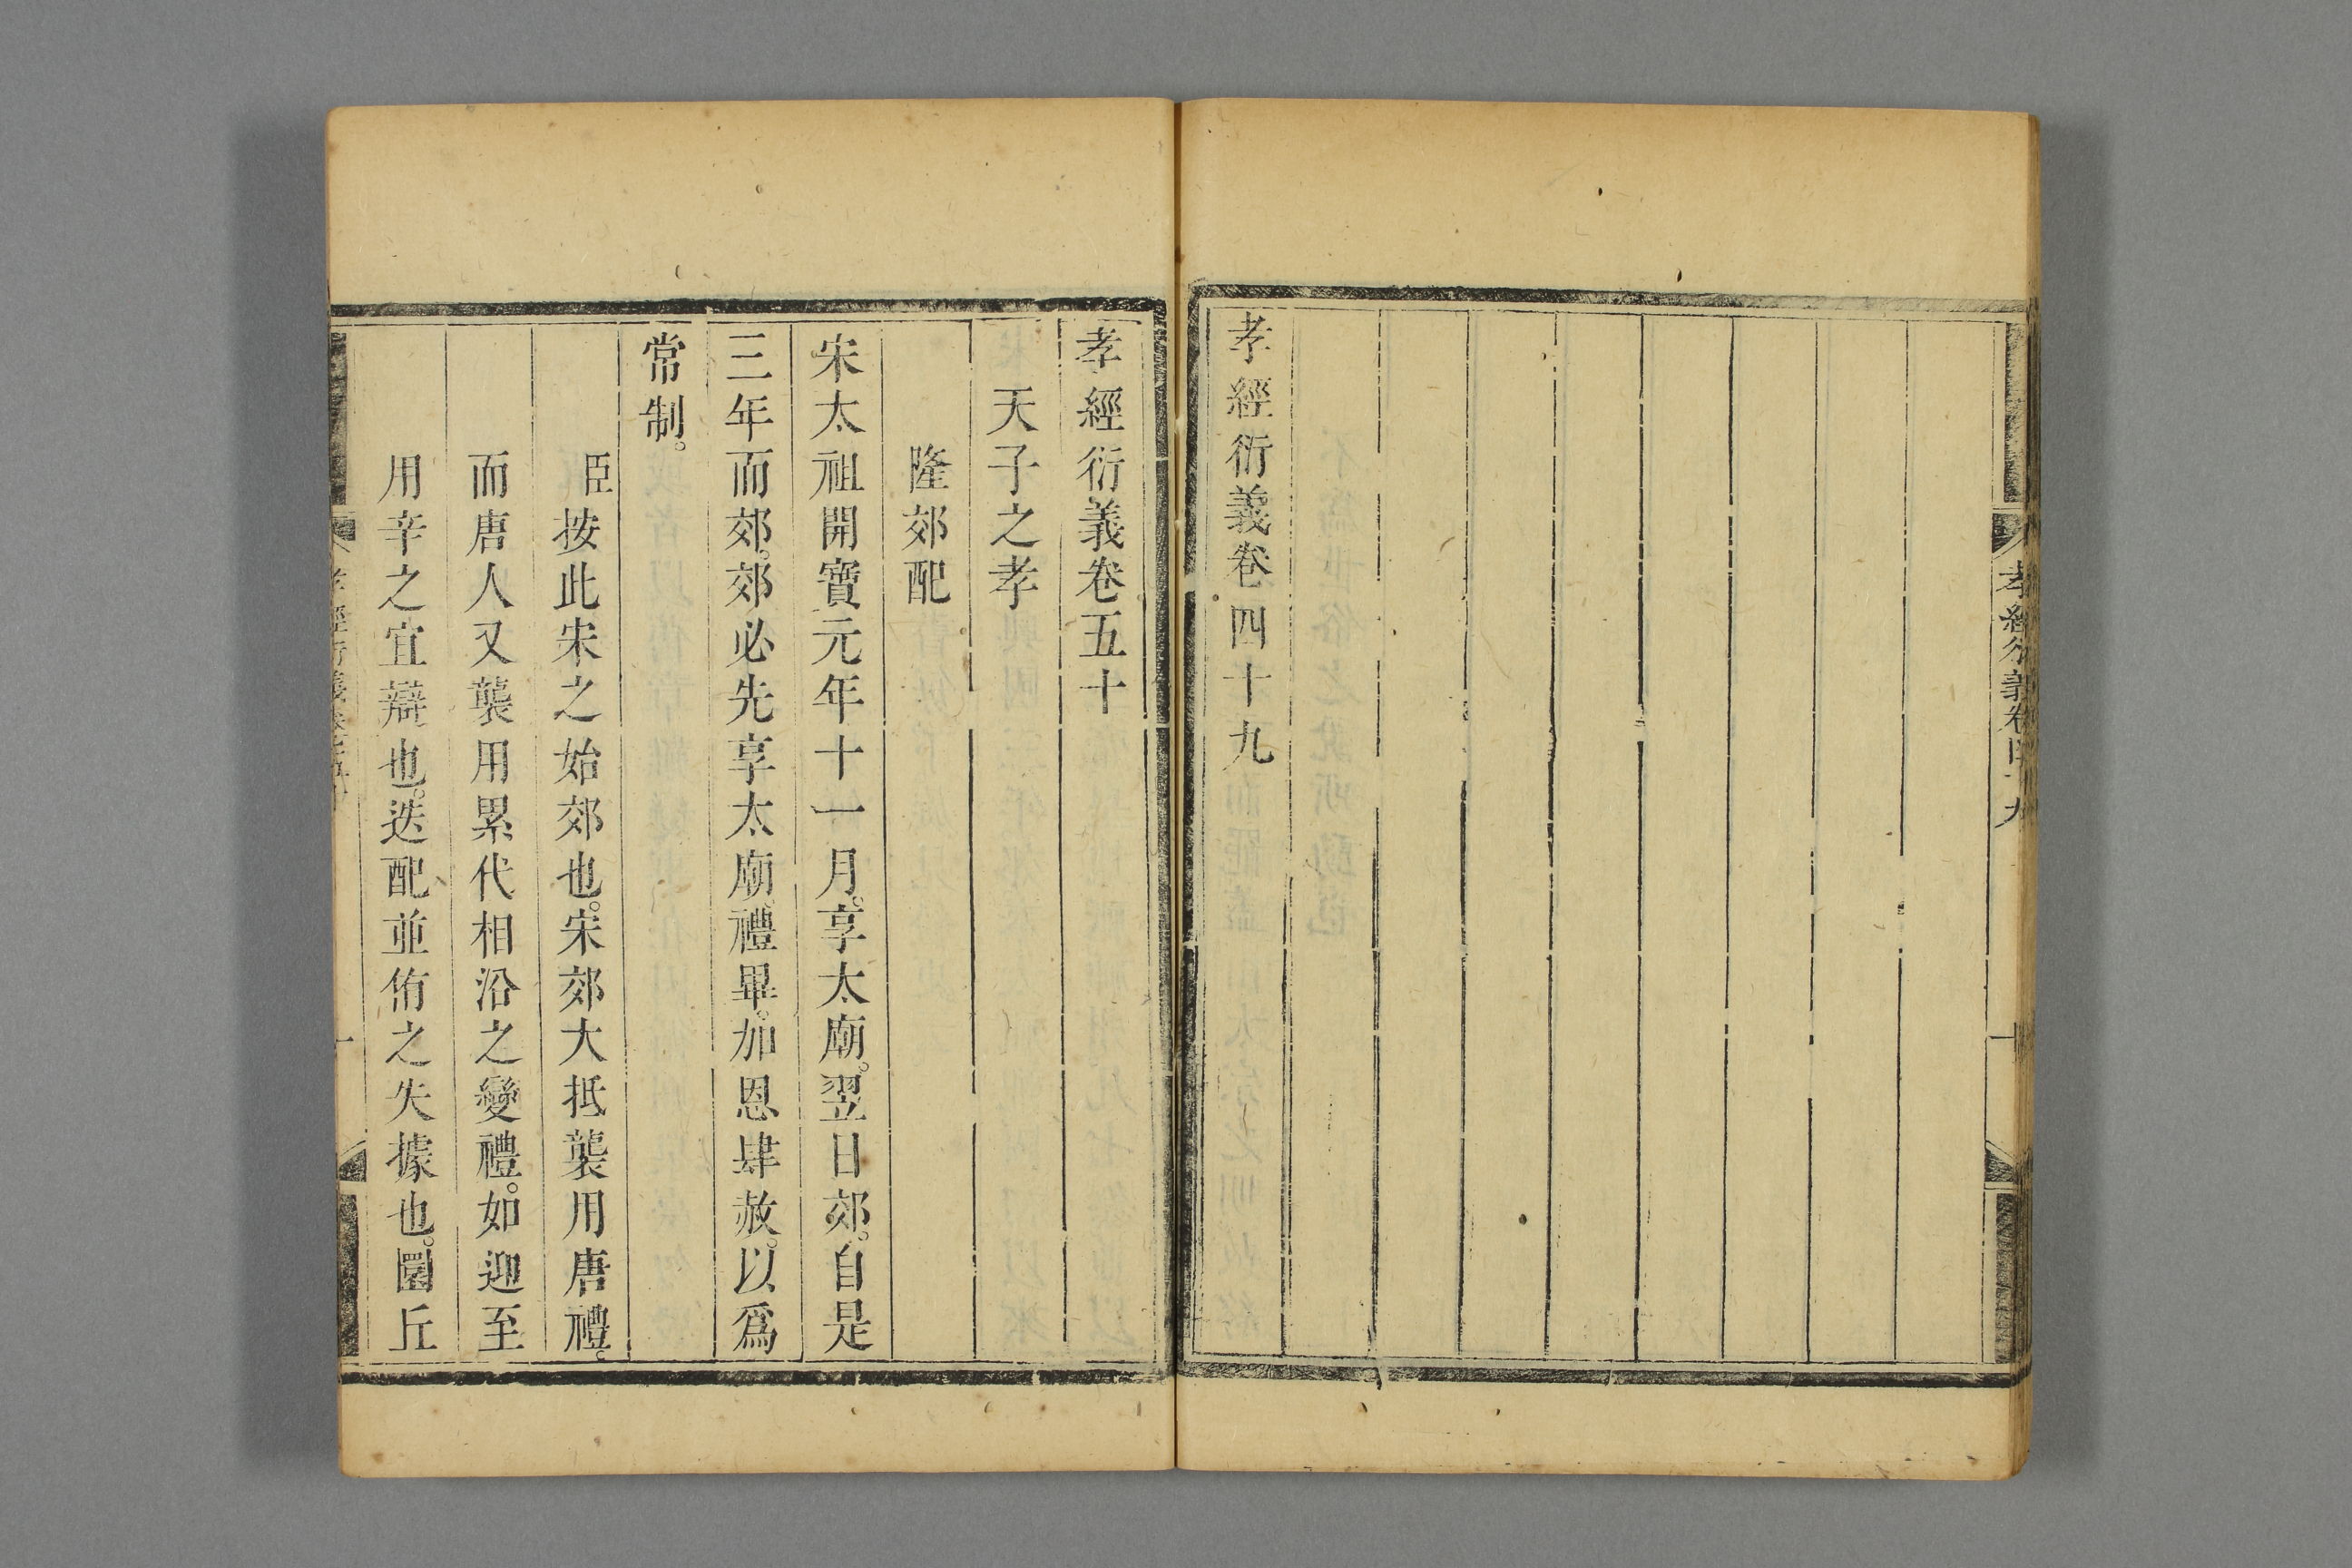 孝經衍義卷四十九
孝經衍義卷五十
天子之孝
隆郊配
宋太祖開寶元年十一月。享太廟。翌日郊。自是
三年而郊。郊必先享太廟。禮畢。加恩肆赦。以爲
常制。
臣按此宋之始郊也。宋郊大抵襲用唐禮。
而唐人又襲用累代相沿之變禮。如迎至
用辛之宜辯也。迭配並侑之失據也。圜丘